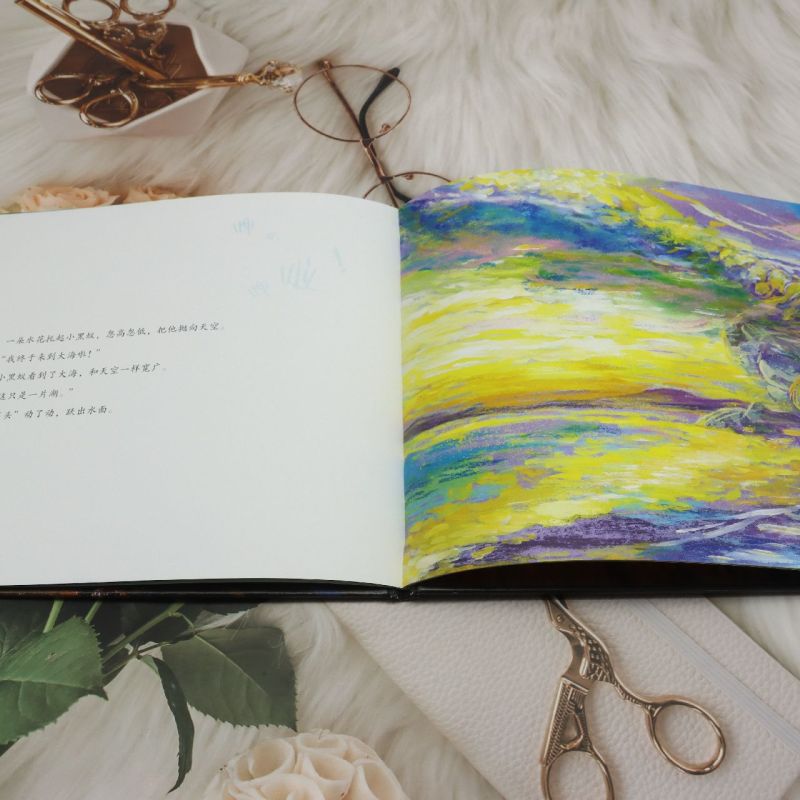 一朵水花托起小黑蚁，忽高忽低，把他抛向天空。
“我终于来到大海啦！”
小黑蚁看到了大海，和天空一样宽广。
这只是一片湖。”
头”动了动，跃出水面。